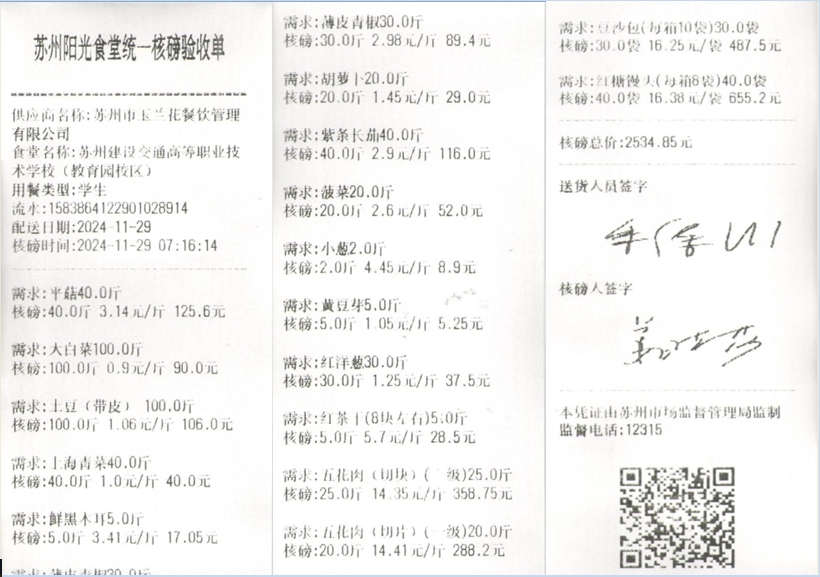 苏州阳光食堂统一核磅验收单
供应商名称:苏州市玉兰花餐饮管理
有限公司
食堂名称:苏州建设交通高等职业技
术学校（教育园校区）
用餐类型:学生
流水:1583864122901028914
配送日期:2024-11-29
核磅时间:2024-11-29 07:16:14
需求:平菇40.0斤
核磅:40.0斤 3.14元/斤 125.6元
需求:大白菜100.0斤
核磅:100.0斤 0.9元/斤 90.0元
需求:土豆（带皮） 100.0斤
核磅:100.0斤 1.06元/斤 106.0元
需求:上海青菜40.0斤
核磅:40.0斤 1.0元/斤 40.0元
需求:鲜黑木耳5.0斤
核磅:5.0斤 3.41元/斤 17.05元
需求:薄皮青椒30.0斤
需求:薄皮青椒30.0斤
核磅:30.0斤 2.98元/斤 89.4元
需求:胡萝卜20.0斤
核磅:20.0斤 1.45元/斤 29.0元
需求:紫条长茄40.0斤
核磅:40.0斤 2.9元/斤 116.0元
需求:菠菜20.0斤
核磅:20.0斤 2.6元/斤 52.0元
需求:小葱2.0斤
核磅:2.0斤 4.45元/斤 8.9元
需求:黄豆芽5.0斤
核磅:5.0斤 1.05元/斤 5.25元
需求:红洋葱30.0斤
核磅:30.0斤 1.25元/斤 37.5元
需求:红茶干(8块左右)5.0斤
核磅:5.0斤 5.7元/斤 28.5元
需求:五花肉（切块）( 级)25.0斤
核磅:25.0斤 14.35元/斤 358.75元
需求:五花肉（切片）( 级)20.0斤
核磅:20.0斤 14.41元/斤 288.2元
需求:豆沙包(每箱10袋)30.0袋
核磅:30.0袋 16.25元/袋 487.5元
需求:红糖馒头(每箱8袋)40.0袋
核磅:40.0袋 16.38元/袋 655.2元
核磅总价:2534.85元
送货人员签字
核磅人签字
本凭证由苏州市场监督管理局监制
监督电话:12315